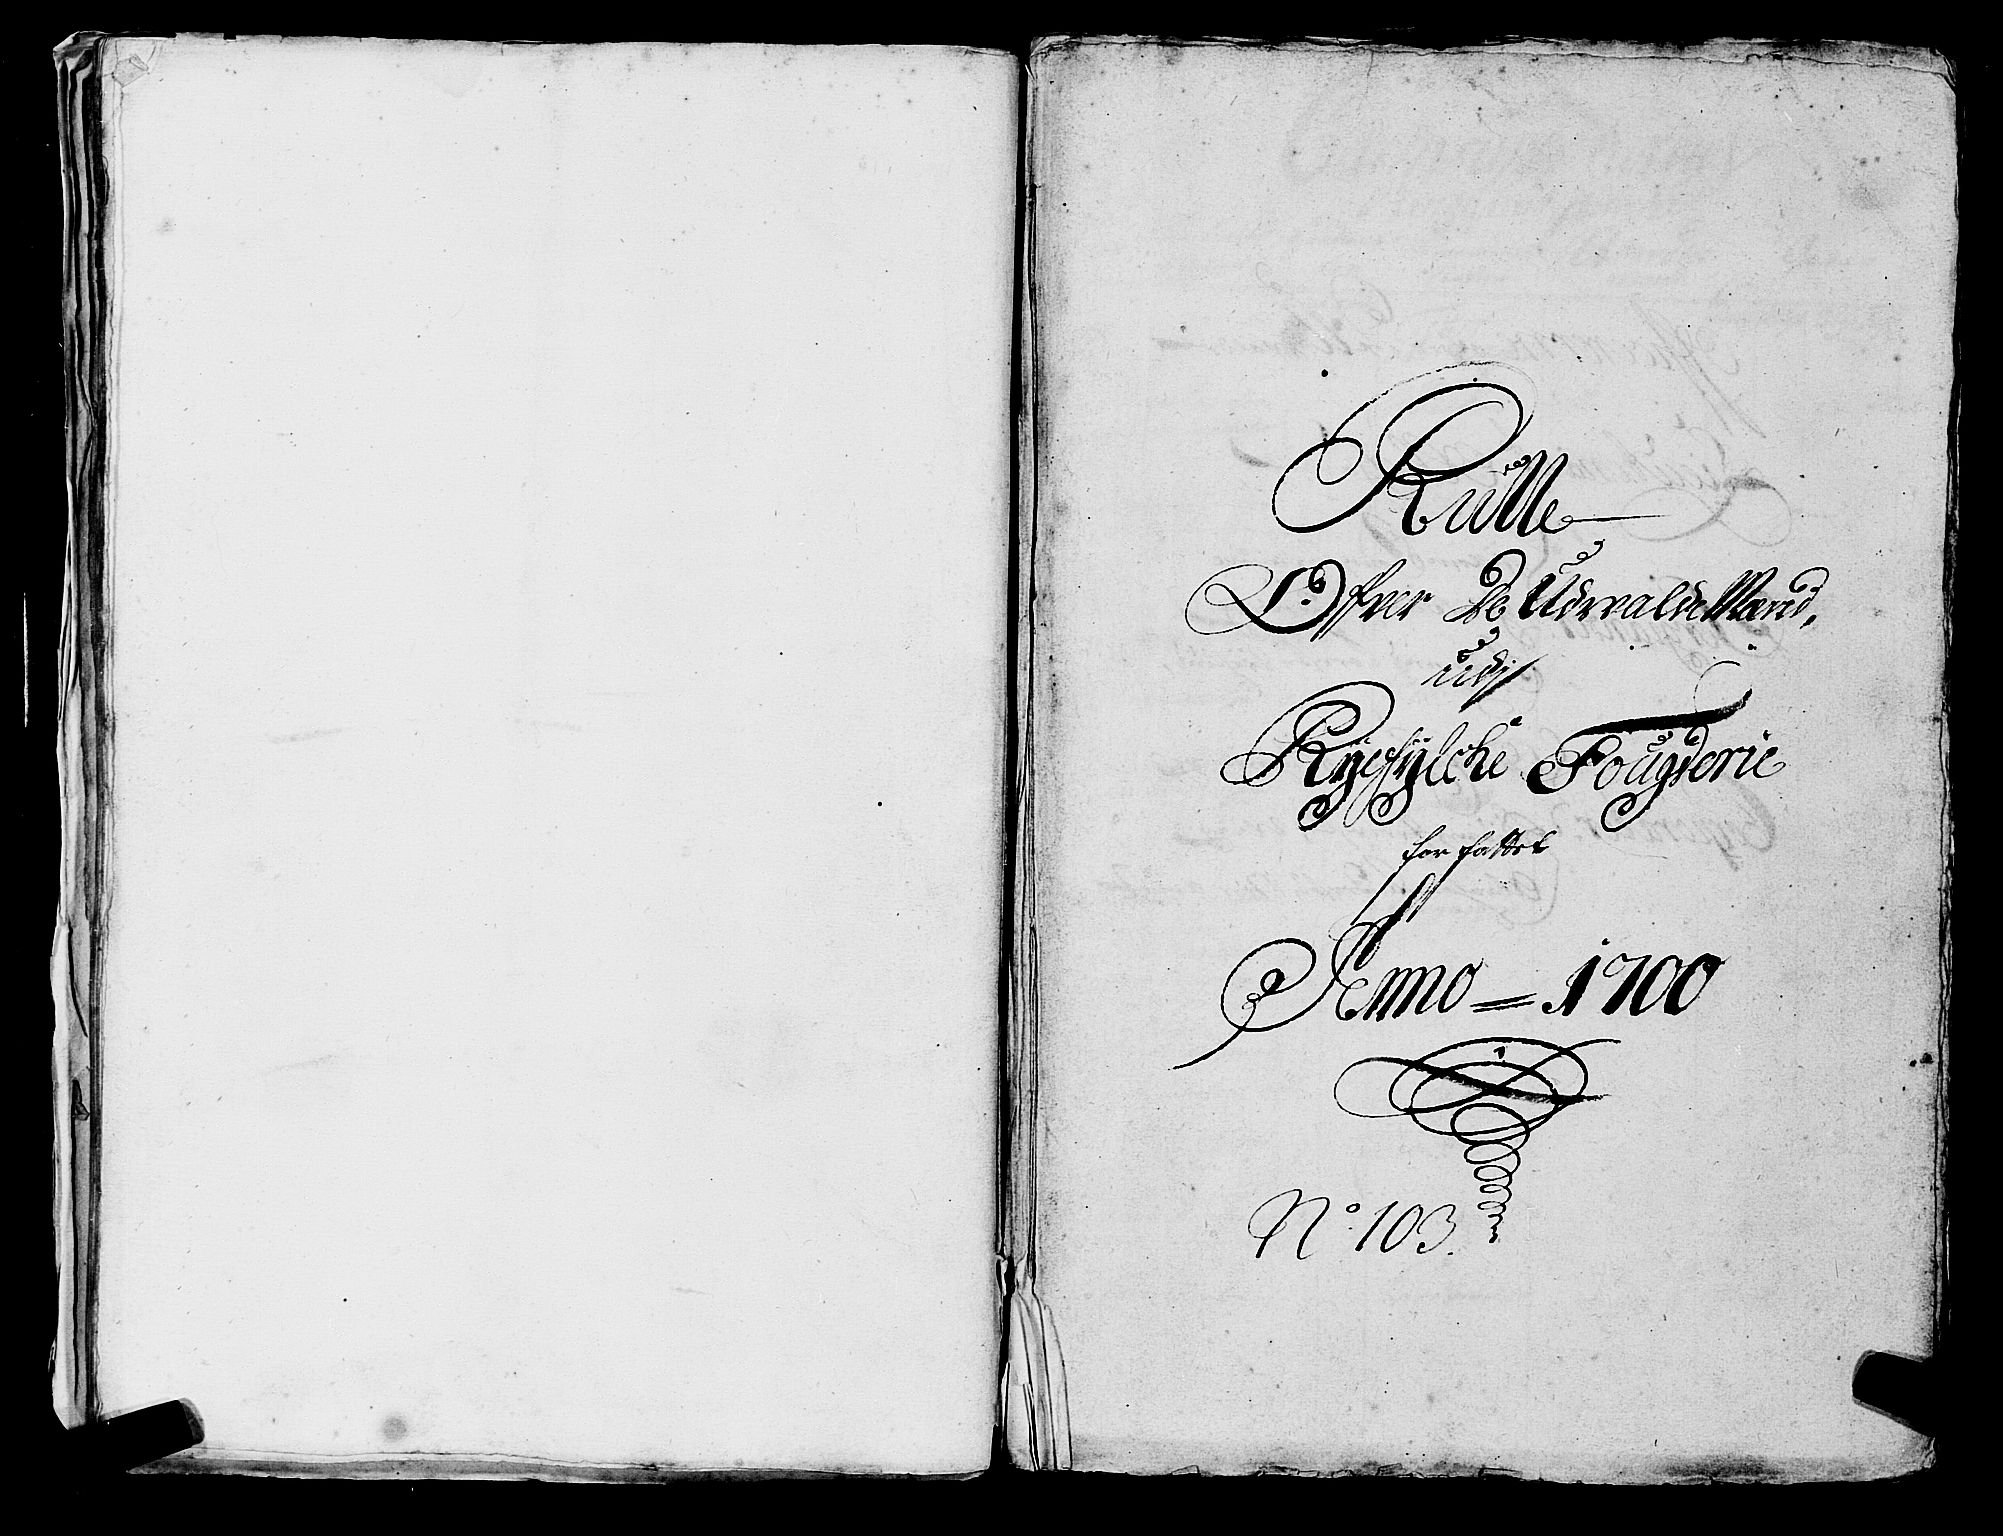 Rulle
Offver De Udvalde Mænd,
udj
Rÿefÿlcke Fougderie
forfattet
Anno = 1700
No. 103.